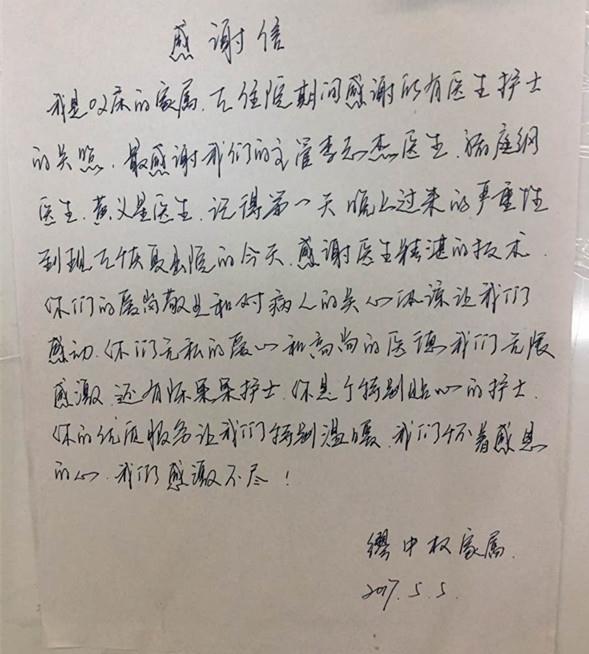 感谢信
我是02床的家属、在住院期间感谢所有医生护士
的关照、最感谢我们的主管李志杰医生、庭纲
医生、黄义星医生、记得第一天晚上过来的严重性
到现在恢复出院的今天、感谢医生精湛的技术、
你们的爱岗敬业和对病人的关心体谅让我们
感动、你们无私的爱心和高尚的医德我们无限
感激、还有陈果果护士、你是个特别贴心的护士、
你的优质服务让我们特别温暖、我们怀着感恩
的心、我们感激不尽！
缪中权家属、
2017.5.5.